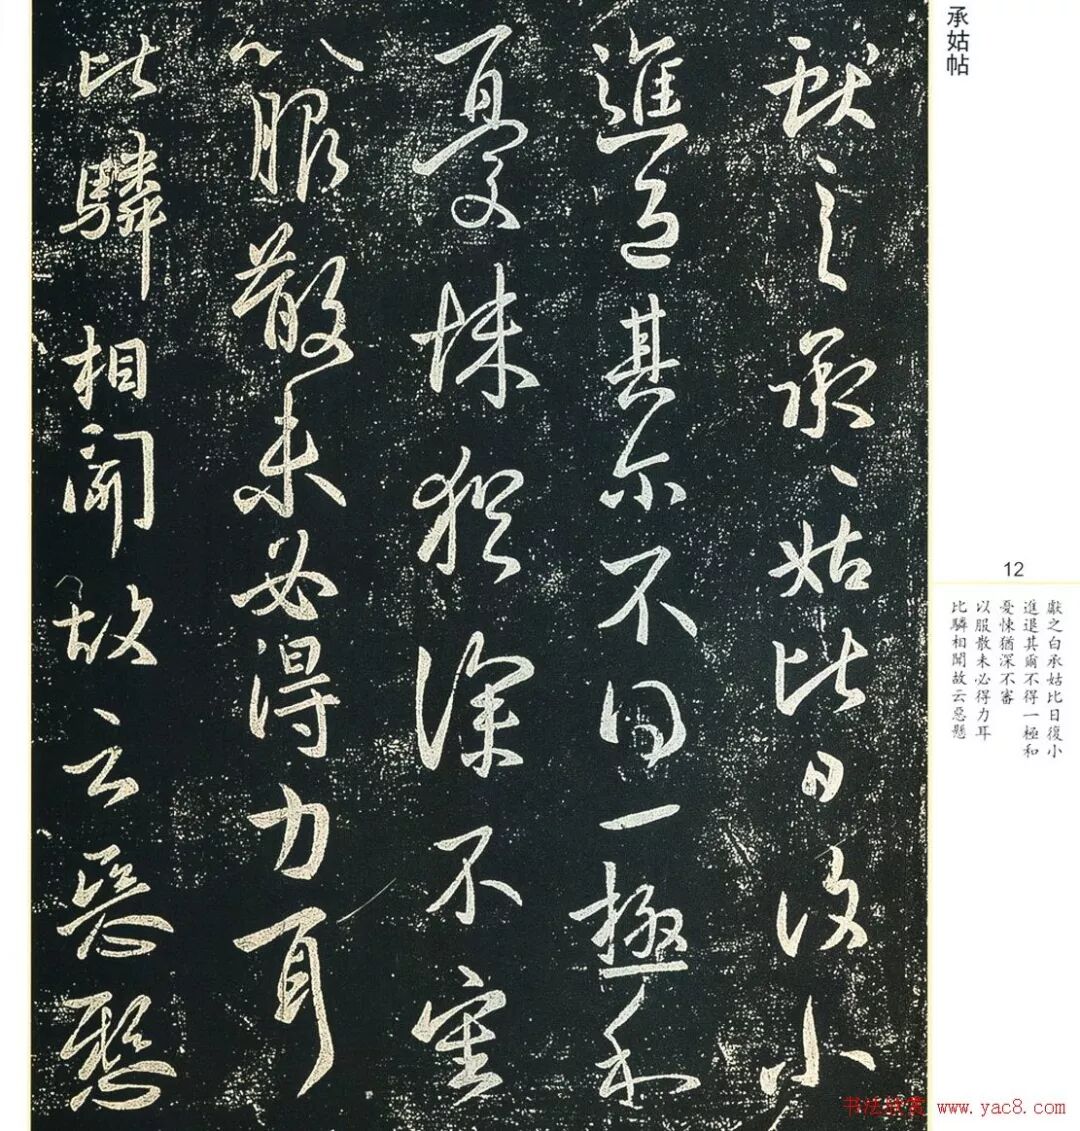 承姑帖
獻之承、姑比日復小
進退其尔不同一極和
憂悚猶深不審
以服散未必得力耳
比驎相聞故云惡懸
12
獻之白承姑比日復小
進退其爾不得一極和
憂悚猶深不審
以服散未必得力耳
比驎相聞故云惡懸
书法欣赏 www.yac8.com